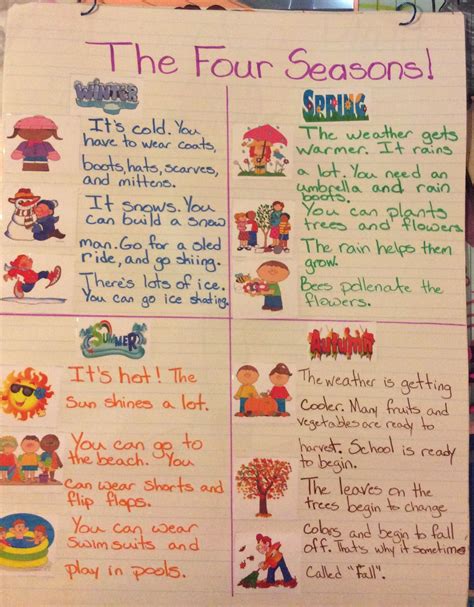 The Four Seasons!
WINTER
It's cold. You
have to wear coats,
boots, hats, scarves,
and mittens.
It snows. You
can build a snow
man. Go for a sled
ride, and go shiing.
There's lots of ice.
You can go ice skating.
SPRING
The weather gets
warmer. It rains
a lot. You need an
umbrella and rain
boots.
You can plants
trees and flowers.
The rain helps them
grow.
Bees pollenate the
flowers.
SUMMER
It's hot! The
Sun shines a lot.
You can go to
the beach. You
can wear shorts and
flip flops.
You can wear
Swim suits and
play in pools.
Autumn
The weather is getting
Cooler. Many fruits and
vegetables are ready to
harvest. School is ready
to begin.
The leaves on the
trees begin to change
Colors and begin to fall
off. That's why it sometime
Called "Fall".